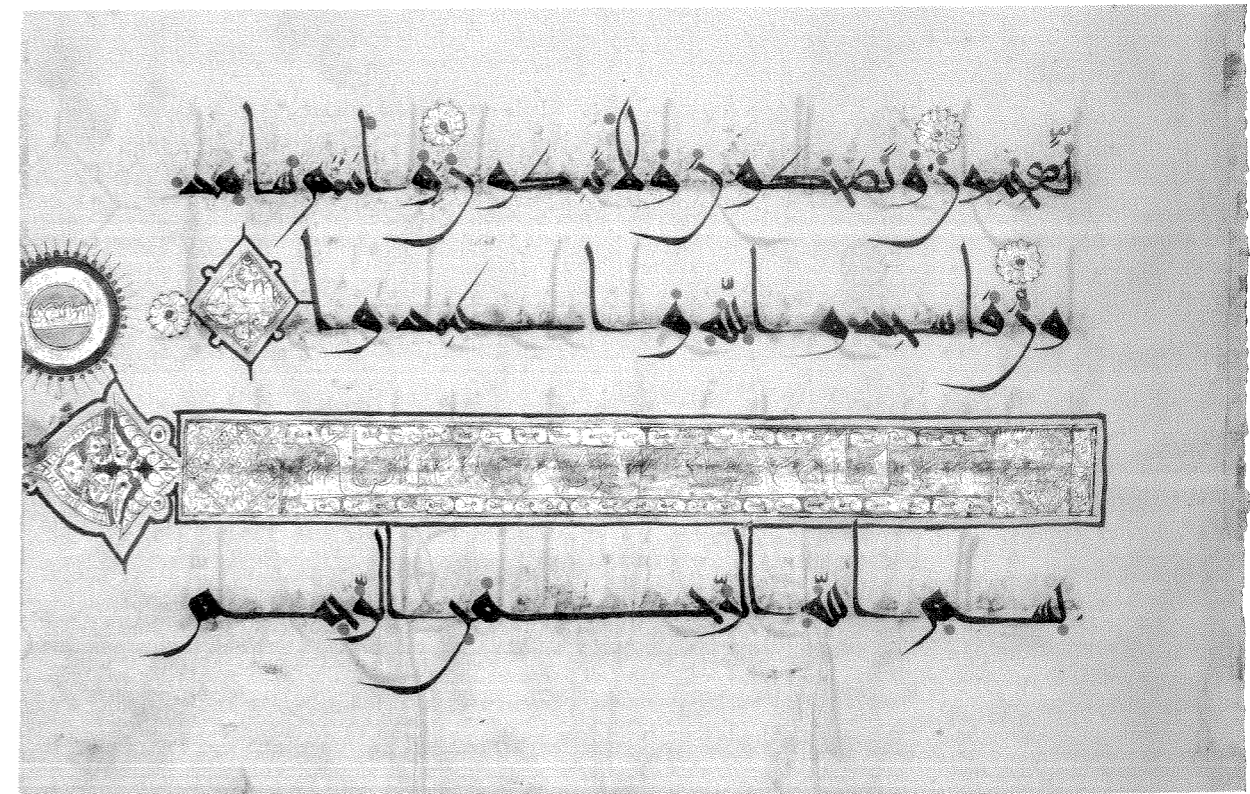 تَعْجَبُونَ وَتَضْحَكُونَ وَلَا تَبْكُونَ وَأَنْتُمْ سَامِدُ
ونَ فَاسْجُدُوا لِلَّهِ وَاعْبُدُوا
بِسْمِ اللَّهِ الرَّحْمَنِ الرَّحِيمِ